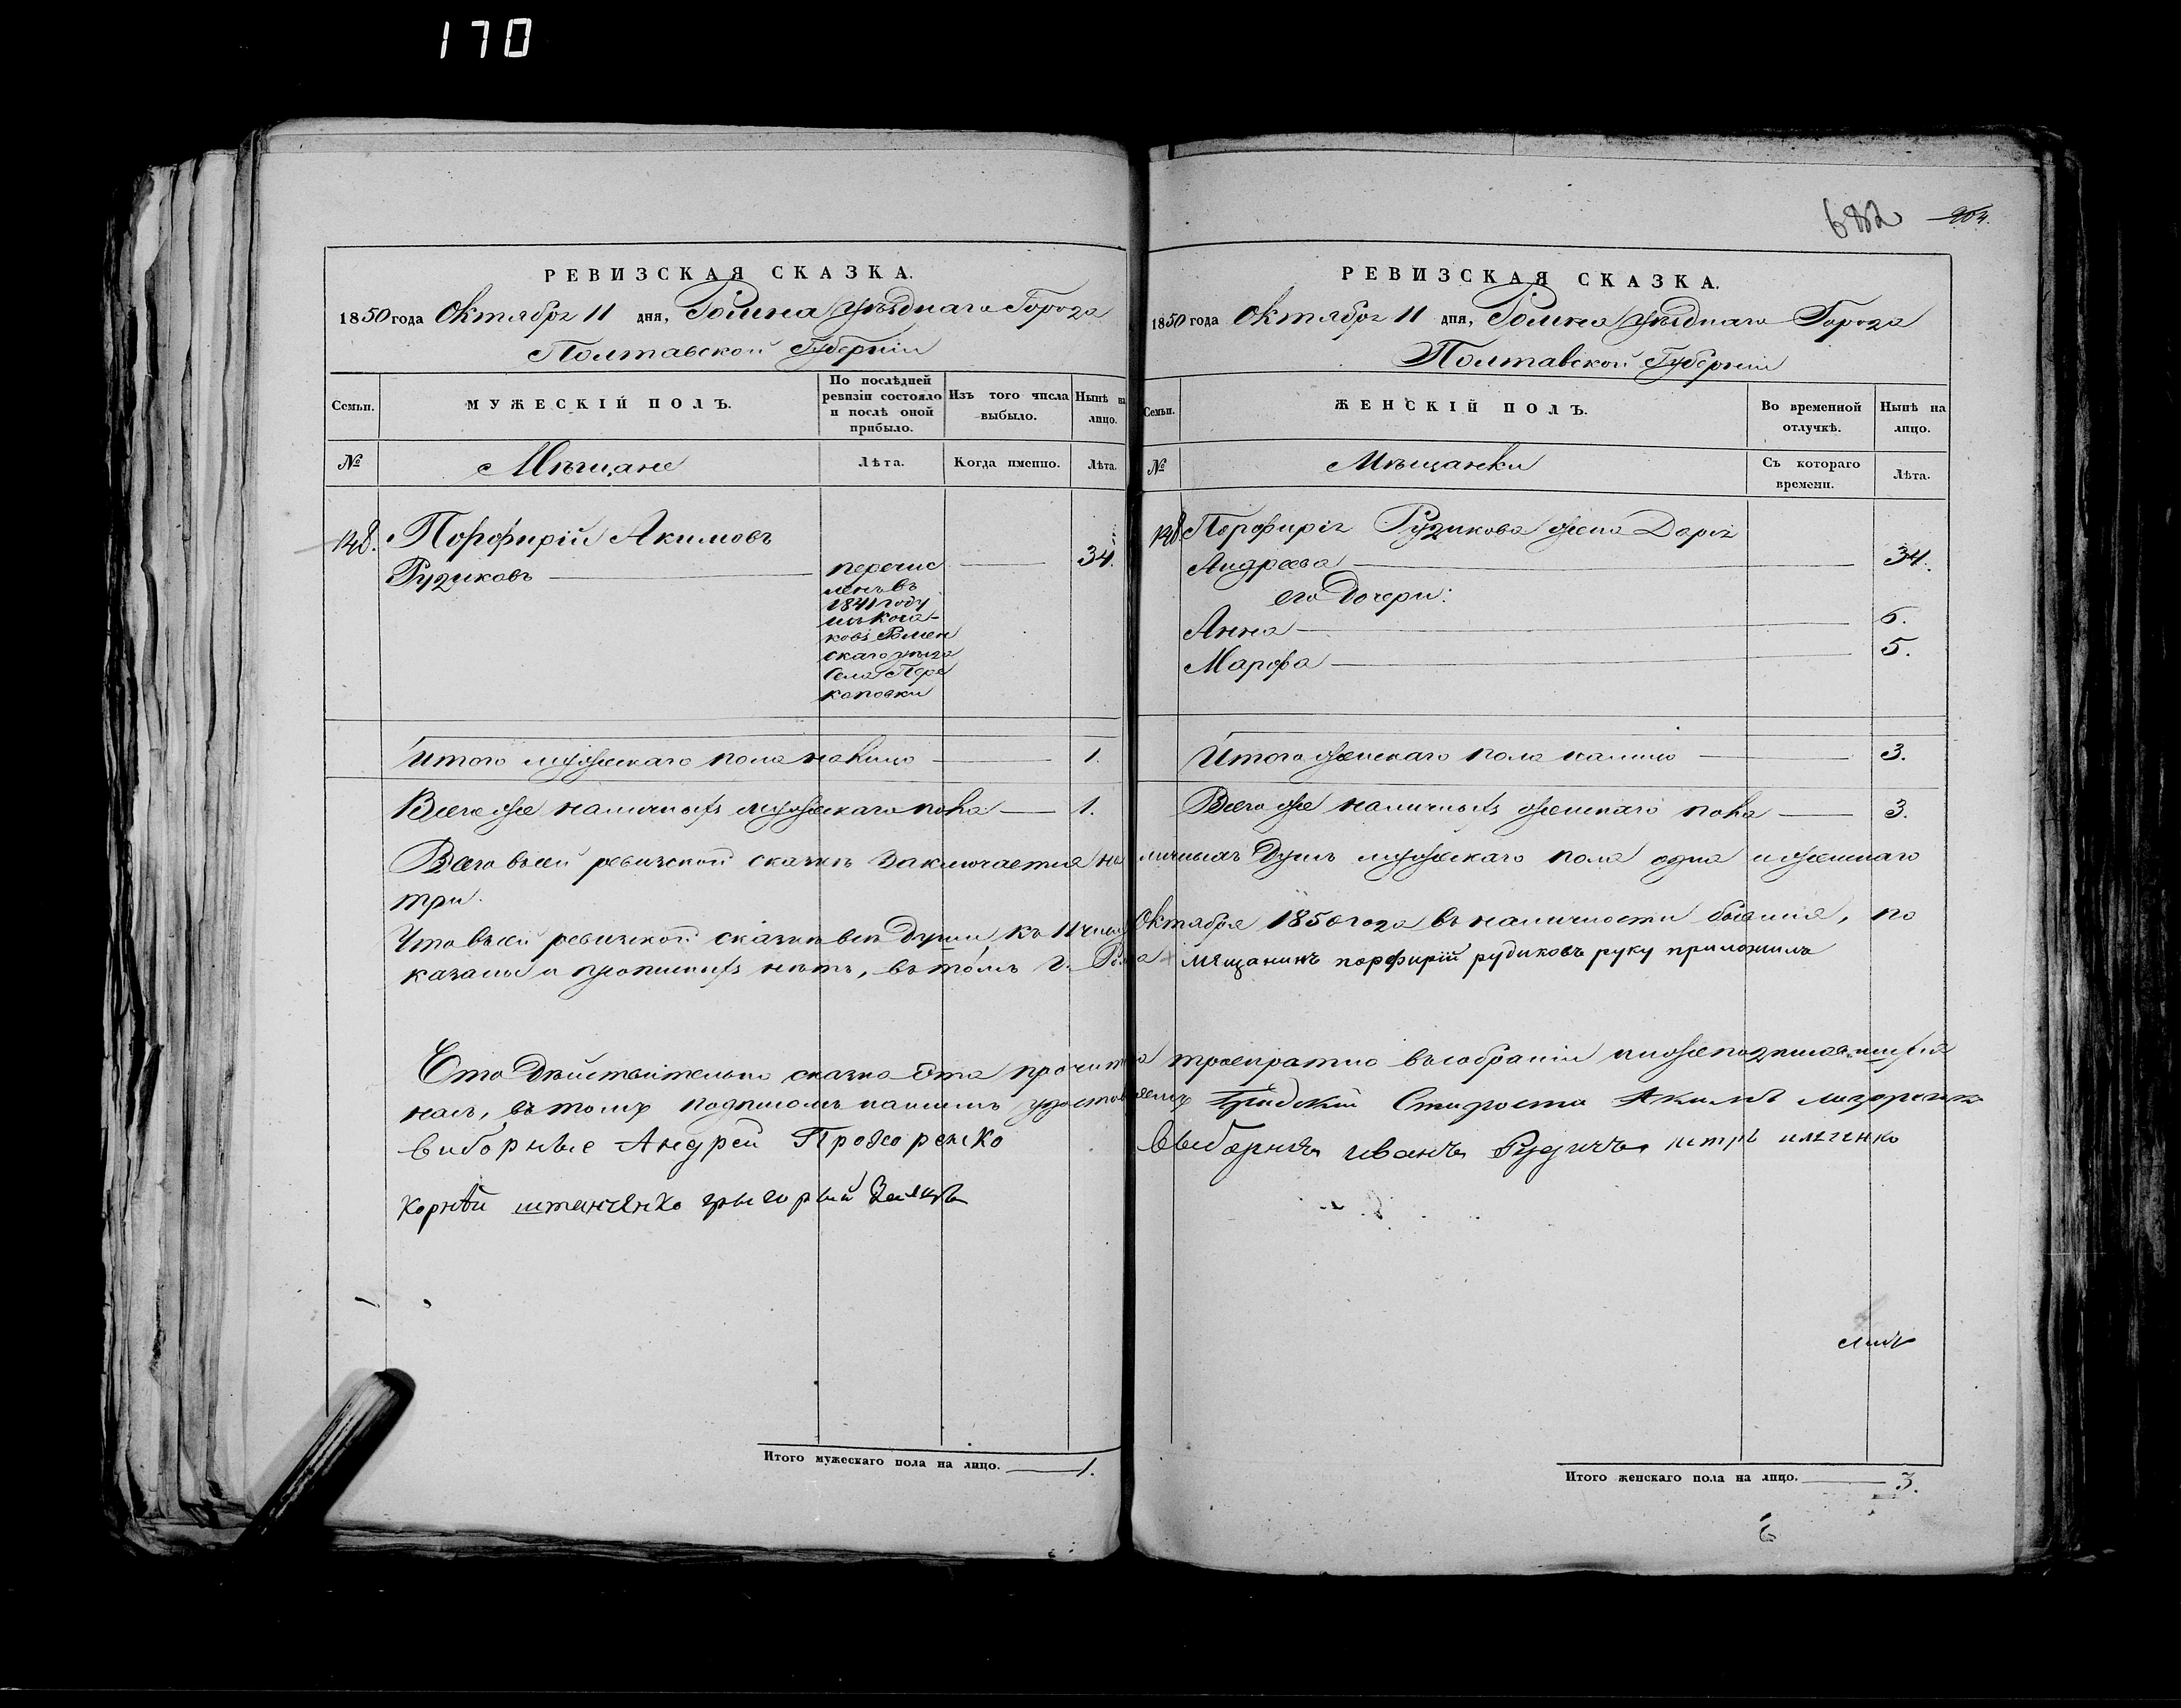 170
682 264.
РЕВИЗСКАЯ СКАЗКА.
1850 года Октября 11 дня, Ромна уѣзднаго Города
Полтавской Губерніи
Семьи.
МУЖЕСКІЙ ПОЛЪ.
По послѣдней ревизіи состояло и послѣ оной прибыло.
Изъ того числа выбыло.
Нынѣ на лицо.
№
Мѣщане
Лѣта.
Когда именно.
Лѣта.
148. Порфирій Акимовъ
Рудиковъ 34.
перечис
ленъ въ
1841 году
изъ Коза-
ковъ Ромен
скаго уѣзда
Села Пере
коповки
Итого мужескаго пола на лицо 1.
Всего же наличныхъ мужескаго пола 1.
РЕВИЗСКАЯ СКАЗКА.
1850 года Октября 11 дня, Ромна уѣзднаго Города
Полтавской Губерніи
Семьи.
ЖЕНСКІЙ ПОЛЪ.
Во временной отлучкѣ.
Нынѣ на лицо.
№
Мѣщанки
Съ котораго времени.
Лѣта.
148. Порфирія Рудикова жена Дарія
Андреева 34.
его Дочери:
Анна 6.
Марфа 5.
Итого женскаго пола на лицо 3.
Всего же наличныхъ женскаго пола 3.
Всего въ сей ревизской сказкѣ заключается наличныхъ Душъ мужескаго пола одна и женскаго
три.
Что въ сей ревизской сказкѣ всѣ Души, къ 11 числу Октября 1850 года въ наличности бывшія, по
казаны и прописныхъ нѣтъ, въ томъ г. Ромна мѣщанинъ порфирій рудиковъ руку приложилъ
Что Дѣйствительно сказка эта прочитана троекратно въ собраніи нижеподписавшихся
насъ, въ томъ подписомъ нашимъ удостовѣряемъ Градскій Староста Акимъ
виборные Андрей Прохоренко Выборный иванъ Рудичъ петръ
Корнѣй штанченко григорый Заяцъ
Итого мужескаго пола на лицо. 1.
Итого женскаго пола на лицо. 3.